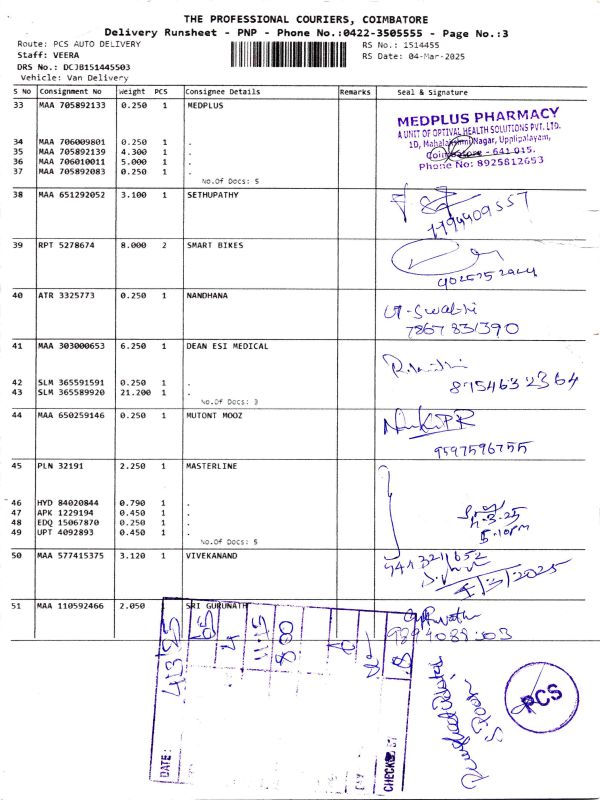 THE PROFESSIONAL COURIERS, COIMBATORE
Delivery Runsheet - PNP - Phone No.:0422-3505555 - Page No.:3
Route: PCS AUTO DELIVERY
RS No.: 1514455
Staff: VEERA
RS Date: 04-Mar-2025
DRS No.: DCJB151445503
Vehicle: Van Delivery
S No Consignment No Weight PCS Consignee Details Remarks Seal & Signature
33 MAA 705892133 0.250 1 MEDPLUS
MEDPLUS PHARMACY
A UNIT OF OPTIVAL HEALTH SOLUTIONS PVT. LTD.
1D, Mahalakshmi Nagar, Upplipalayam,
Coimbatore - 641 015.
Phone No: 8925812653
34 MAA 706009801 0.250 1 .
35 MAA 705892139 4.300 1 .
36 MAA 706010011 5.000 1 .
37 MAA 705892083 0.250 1 .
No.Of Docs: 5
38 MAA 651292052 3.100 1 SETHUPATHY
39 RPT 5278674 8.000 2 SMART BIKES
40 ATR 3325773 0.250 1 NANDHANA
7867831390
41 MAA 303000653 6.250 1 DEAN ESI MEDICAL
8754632364
42 SLM 365591591 0.250 1 .
43 SLM 365589920 21.200 1 .
No.Of Docs: 3
44 MAA 650259146 0.250 1 MUTONT MOOZ
9597596755
45 PLN 32191 2.250 1 MASTERLINE
46 HYD 84020844 0.790 1 .
47 APK 1229194 0.450 1 .
48 EDQ 15067870 0.250 1 .
49 UPT 4092893 0.450 1 .
No.Of Docs: 5
4.3.25
5.10pm
50 MAA 577415375 3.120 1 VIVEKANAND
9413211652
4/3/2025
51 MAA 110592466 2.050 SRI GURUNATH
DATE: 4/3/25
8.00
CHECKED BY
PCS